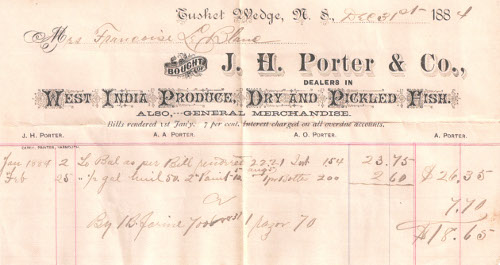 Tusket Wedge, N. S., Dec 31st 1884
Mrs Francoise LeBlanc
BOUGHT OF
J. H. Porter & Co.,
DEALERS IN
West India Produce, Dry and Pickled Fish.
ALSO,--GENERAL MERCHANDISE.
Bills rendered 1st Jan'y. 7 per cent. Interest charged on all overdue accounts.
J. H. PORTER. A. A. PORTER. A. O. PORTER. A. PORTER.
Jan 2 To Bal as per Bill rendered 22.21 Int 154 23.75
Feb 25 " gal 50 2 " 200 2 60 $26.35
7.70
By 1 Razor 70 $18.65